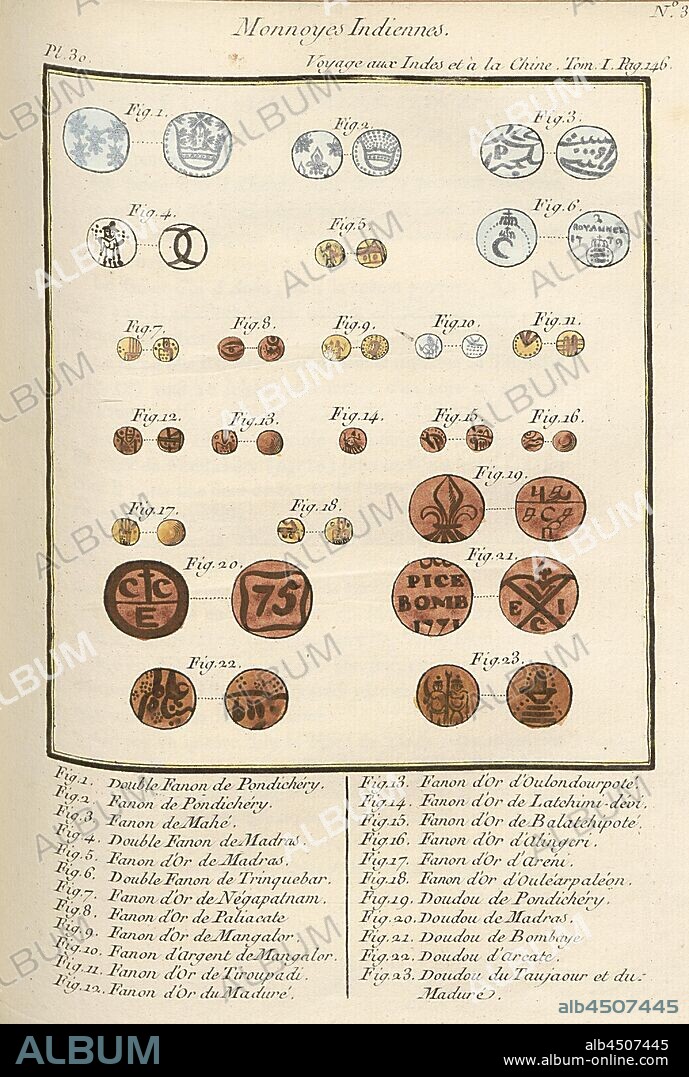 N.º 3
Monnoyes Indiennes.
Pl. 30.
Voyage aux Indes et à la Chine. Tom. I. Pag. 146.
Fig. 1.
Fig. 2.
Fig. 3.
Fig. 4.
Fig. 5.
Fig. 6.
2
ROYALINER
17 79
Fig. 7.
Fig. 8.
Fig. 9.
Fig. 10.
Fig. 11.
Fig. 12.
Fig. 13.
Fig. 14.
Fig. 15.
Fig. 16.
Fig. 17.
Fig. 18.
Fig. 19.
Fig. 20.
C C
E
75
Fig. 21.
PICE
BOMB
1771
E I
C
Fig. 22.
Fig. 23.
Fig. 1. Double Fanon de Pondichéry.
Fig. 2. Fanon de Pondichéry.
Fig. 3. Fanon de Mahé.
Fig. 4. Double Fanon de Madras.
Fig. 5. Fanon d'Or de Madras.
Fig. 6. Double Fanon de Trinquebar.
Fig. 7. Fanon d'Or de Négapatnam.
Fig. 8. Fanon d'Or de Paliacate
Fig. 9. Fanon d'Or de Mangalor.
Fig. 10. Fanon d'Argent de Mangalor.
Fig. 11. Fanon d'Or de Tiroupadi.
Fig. 12. Fanon d'Or du Maduré.
Fig. 13. Fanon d'Or d'Oulondourpoté.
Fig. 14. Fanon d'Or de Latchimi-dévi.
Fig. 15. Fanon d'Or de Balatchipoté.
Fig. 16. Fanon d'Or d'Alingeri.
Fig. 17. Fanon d'Or d'Areni.
Fig. 18. Fanon d'Or d'Ouléarpaléon.
Fig. 19. Doudou de Pondichéry.
Fig. 20. Doudou de Madras.
Fig. 21. Doudou de Bombaye
Fig. 22. Doudou d'Arcate.
Fig. 23. Doudou du Taujaour et du
Maduré.
alb4507445
ALBUM
alb4507445
www.album-online.com